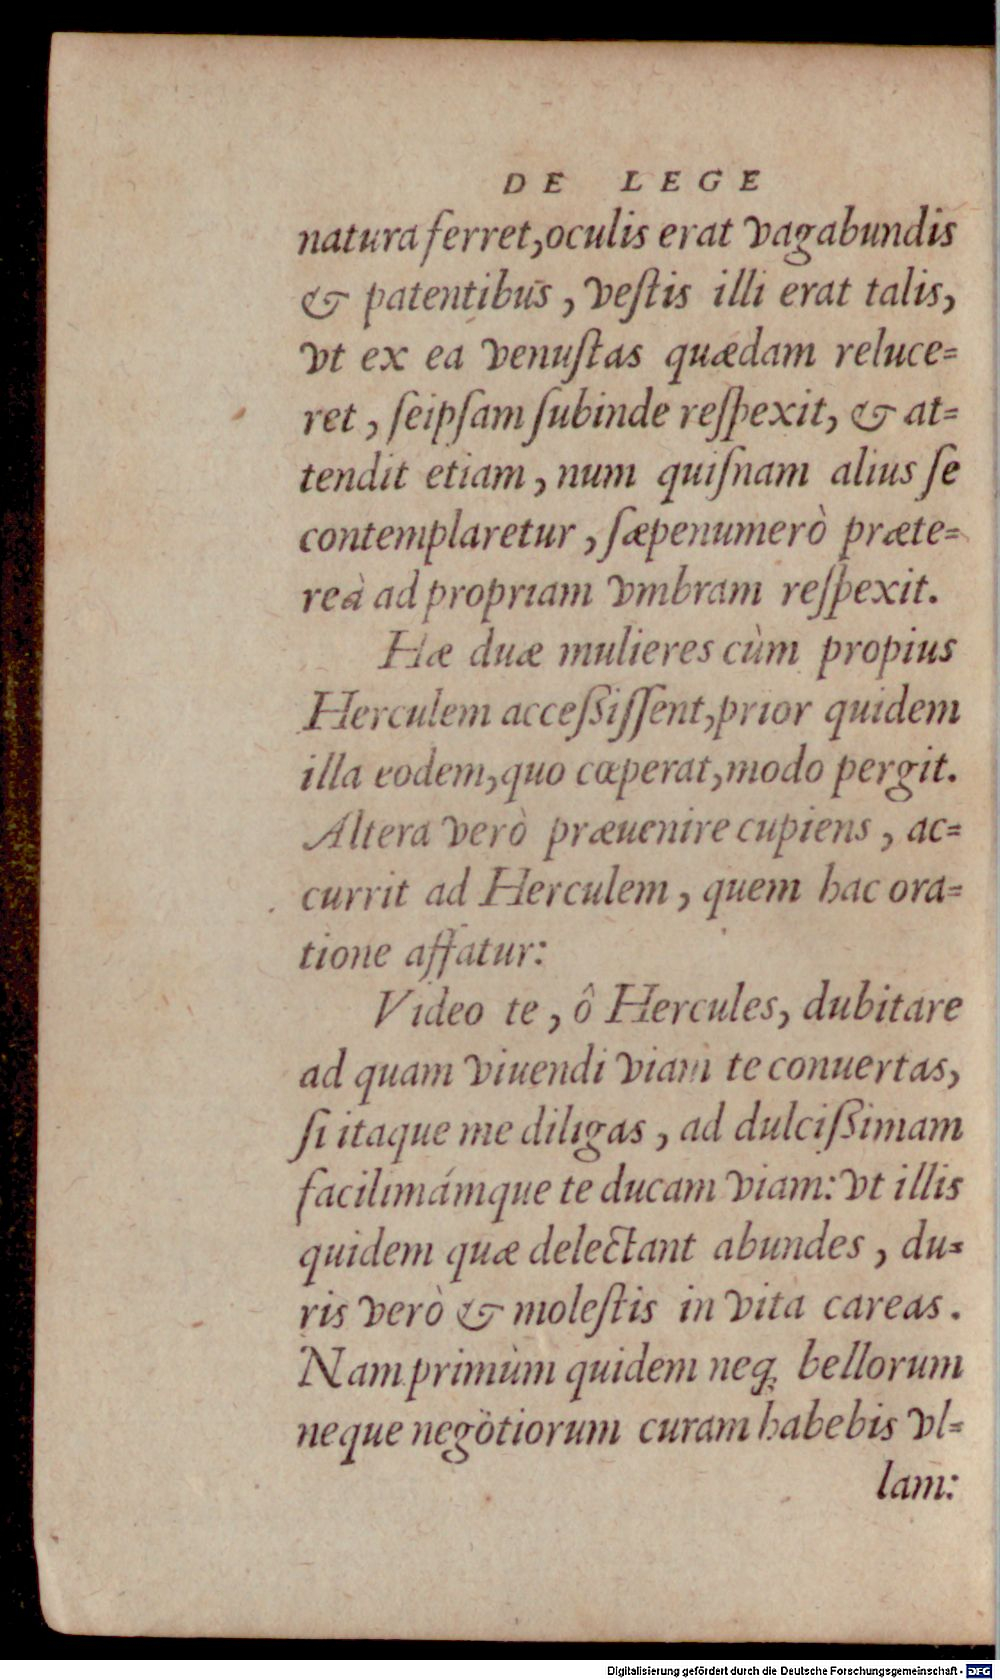 DE LEGE
natura ferret, oculis erat vagabundis
& patentibus, veſtis illi erat talis,
vt ex ea venuſtas quædam reluce=
ret, ſeipſam ſubinde reſpexit, & at=
tendit etiam, num quiſnam alius ſe
contemplaretur, ſæpenumerò præte=
reà ad propriam vmbram reſpexit.
Hæ duæ mulieres cùm propius
Herculem acceßiſſent, prior quidem
illa eodem, quo cœperat, modo pergit.
Altera verò præuenire cupiens, ac=
currit ad Herculem, quem hac ora=
tione affatur:
Video te, ô Hercules, dubitare
ad quam viuendi viam te conuertas,
ſi itaque me diligas, ad dulcißimam
facilimámque te ducam viam: vt illis
quidem quæ delectant abundes, du=
ris verò & moleſtis in vita careas.
Nam primùm quidem neq; bellorum
neque negotiorum curam habebis vl=
lam:
Digitalisierung gefördert durch die Deutsche Forschungsgemeinschaft - DFG